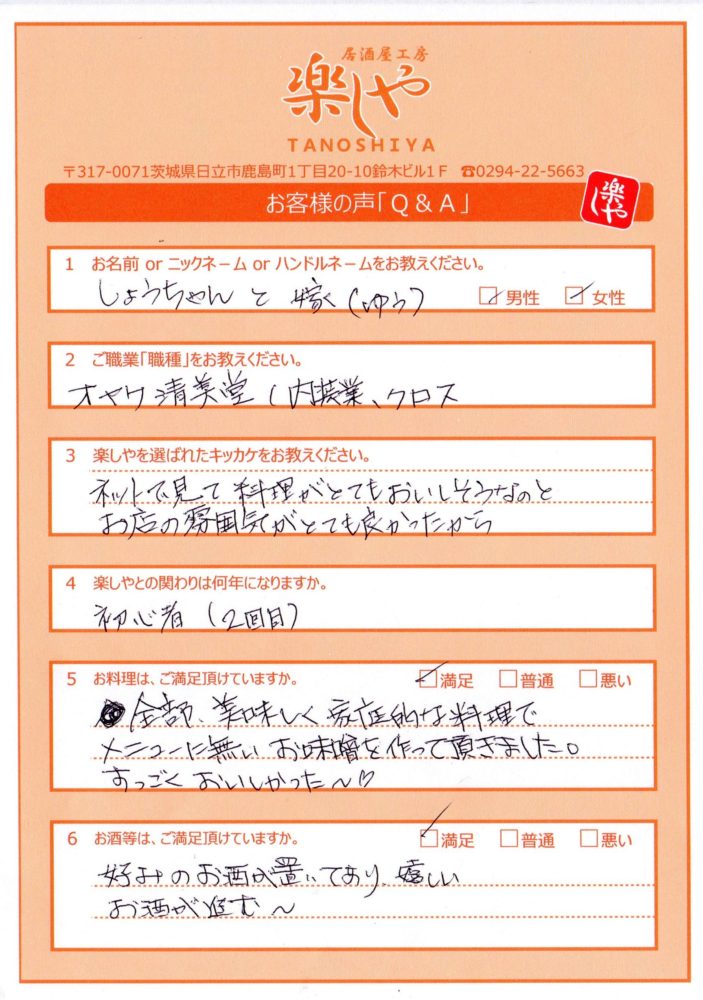 居酒屋工房
楽しや
TANOSHIYA
〒317-0071茨城県日立市鹿島町1丁目20-10鈴木ビル1F ☎0294-22-5663
お客様の声「Q&A」
楽しや
1 お名前 or ニックネーム or ハンドルネームをお教えください。
しょうちゃん と 嫁 (ゆう)
☑男性 ☑女性
2 ご職業「職種」をお教えください。
オヤワ清美堂 (内装業、クロス
3 楽しやを選ばれたキッカケをお教えください。
ネットで見て 料理がとてもおいしそうなのと
お店の雰囲気がとても良かったから
4 楽しやとの関わりは何年になりますか。
初心者 (2回目)
5 お料理は、ご満足頂けていますか。 ☑満足 □普通 □悪い
全部、美味しく 家庭的な料理で
メニューに無い お味噌を作って頂きました。
すっごく おいしかった～♡
6 お酒等は、ご満足頂けていますか。 ☑満足 □普通 □悪い
好みのお酒が置いてあり、嬉しい
お酒が進む～